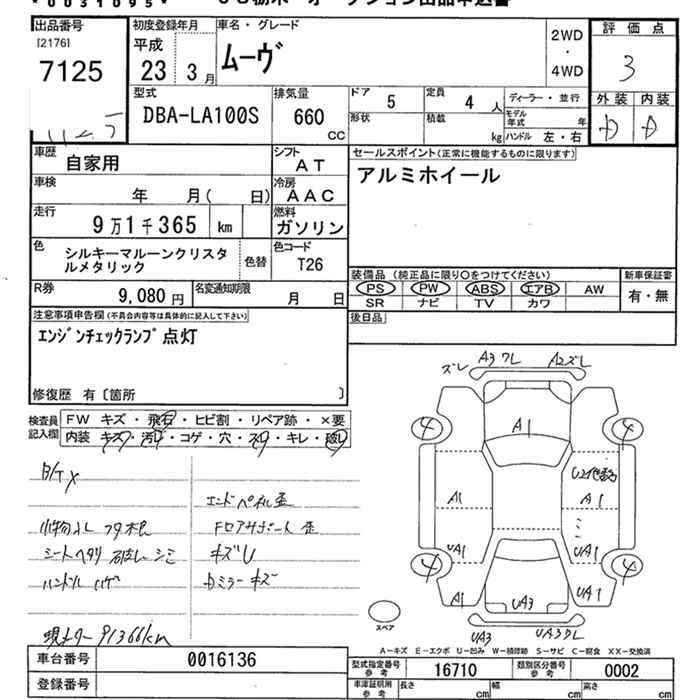 * 0031095 *
出品番号
[2176]
7125
初度登録年月
平成
23 3 月
車名・グレード
ムーヴ
2WD
・
4WD
評価点
3
外装 内装
D D
型式
DBA-LA100S
排気量
660
CC
ドア 5
定員 4 人
形状
積載 kg
ディーラー・並行
モデル年式 年
ハンドル 左・右
車歴
自家用
シフト
AT
セールスポイント(正常に機能するものに限ります)
アルミホイール
車検
年 月( 日)
冷房
AAC
走行
9万1千365 km
燃料
ガソリン
色
シルキーマルーンクリスタ
ルメタリック
色替
色コード
T26
装備品 (純正品に限り○をつけてください)
PS PW ABS エアB AW
SR ナビ TV カワ
新車保証書
有・無
R券
9,080 円
名変通知期限
月 日
後日品
注意事項申告欄(不具合内容等は具体的に記入して下さい)
エンジンチェックランプ点灯
修復歴 有〔箇所 〕
検査員
記入欄
FW キズ・飛石・ヒビ割・リペア跡・×要
内装 キズ・汚れ・コゲ・穴・スレ・キレ・破れ
エンドパネル歪
小物入レ フタ
シートヘタリ シミ
ハンドル ハゲ
Fロアサポート歪
キズU
カミラーキズ
現メーター 91366km
ズレ A3ワレ A2ズレ
4 4
A1
A1 A1
UA1 UA1
4 4
A1 UA3 UA1
UA3 UA3ワレ
スペア
A-キズ E-エクボ U-凹み W-補修跡 S-サビ C-腐食 XX-交換済
車台番号
0016136
登録番号
型式指定番号
参考
16710
類別区分番号
参考
0002
車庫証明用
参考
長さ cm
幅 cm
高さ cm